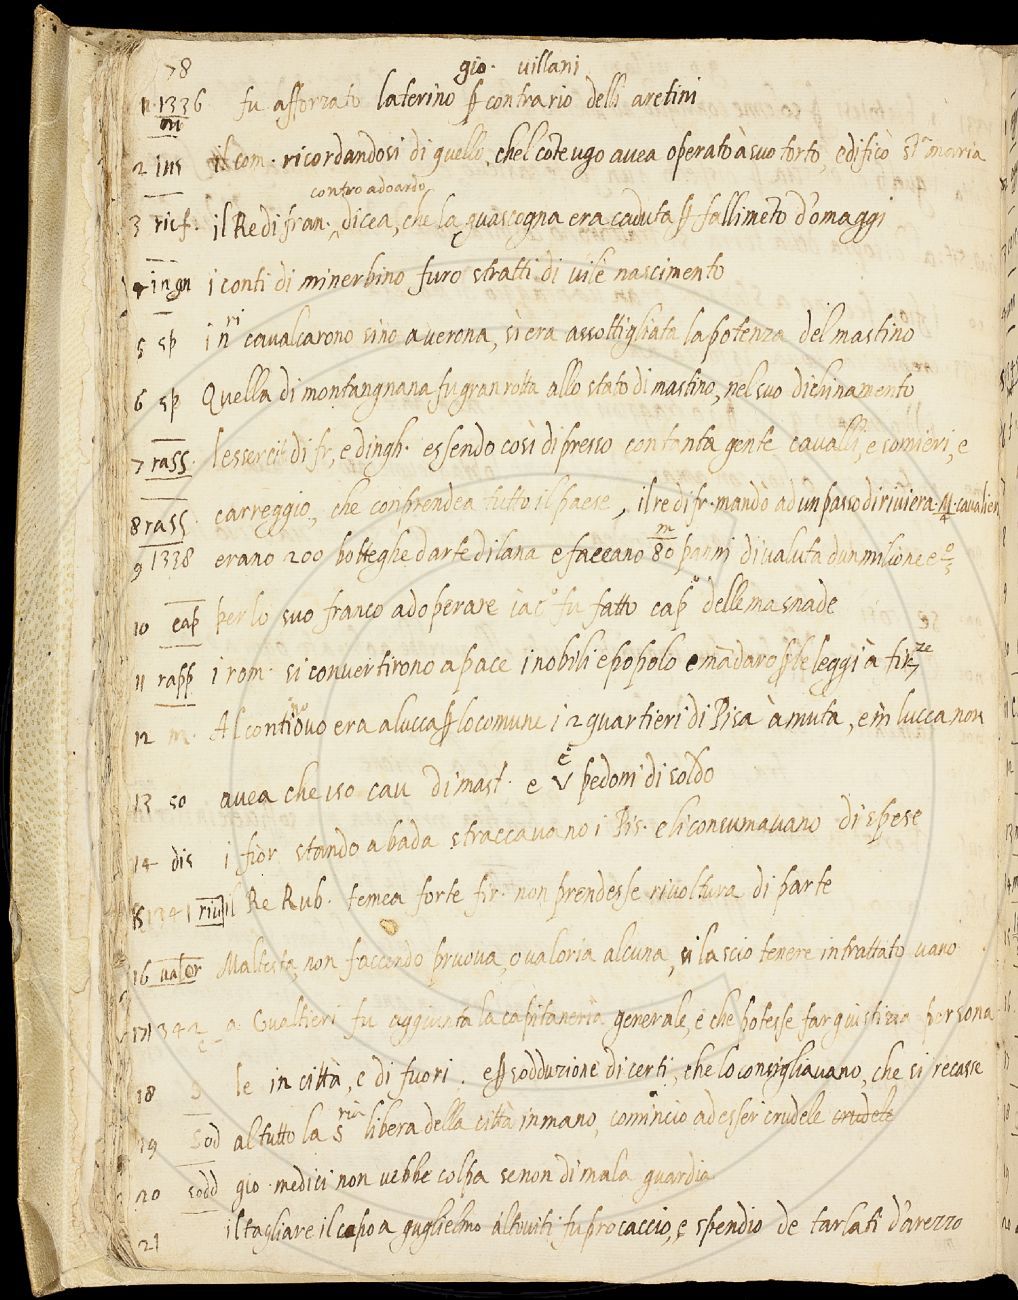 78
gio. villani
1 1336 fu afforzato laterino p contrario delli aretini
m
2 ins il com. ricordandosi di quello, chel cote ugo avea operato à suo torto, edificò sta maria
contro adoardo
3 ricf. il Re di fran. dicea, che la guascogna era caduta p fallimeto d'omaggi
4 ingn i conti di minerbino furo stratti di vile nascimento
5 sp i nri cavalcarono sino a verona, sì era assottigliata la potenza del mastino
6 sp Quella di montangnana fu gran rotta allo stato di mastino, nel suo dichinamento
7 rass. lessercit di fr, e dingh. essendo così di presso con tanta gente cavalli, e somieri, e
8 rass. carreggio, che conprendea tutto il paese, il re di fr. mando ad un passo di riviera M. cavalieri
9 1338 erano 200 botteghe d'arte di lana e faceano 80 m panni di valuta dun milione e
10 cap per lo suo franco adoperare iaco fu fatto capo delle masnade
11 rapp i rom. si convertirono a pace i nobili e popolo e mādaro p le leggi à firze
12 m. Al continovo era a lucca p lo comune i 2 quartieri di Pisa à muta, e in lucca non
13 so avea che 150 cav di mast. e v c pedoni di soldo
14 dis i fior stando a bada straccavano i Pis. e li consumavano di spese
15 1341 riu il Re Rub. temea forte fir. non prendesse rivoltura di parte
16 valor Maltesta, non faccendo pruova, o valoria alcuna, si lascio tenere in trattato vano
17 1342 a Gualtieri fu aggiunta la capitaneria generale, e che potesse far giustizia persona
18 le in città, e di fuori. e p sodduzione di certi, che lo consigliavano, che si recasse
19 sod al tutto la sria libera della città in mano, cominciò ad esser crudele crudele
20 sodd gio. medici non vebbe colpa senon di mala guardia
21 il tagliare il capo a guglielmo altoviti fu procaccio, e spendio de tarlati d'arezzo